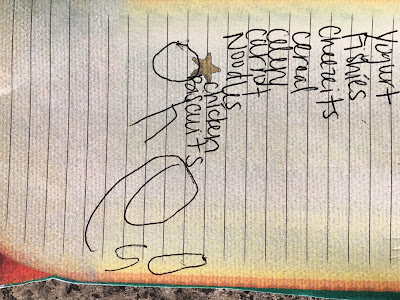 Yugurt
Fishies
Cheezeits
cereal
Celery
Carrot
Noodles
chicken
Biscuits